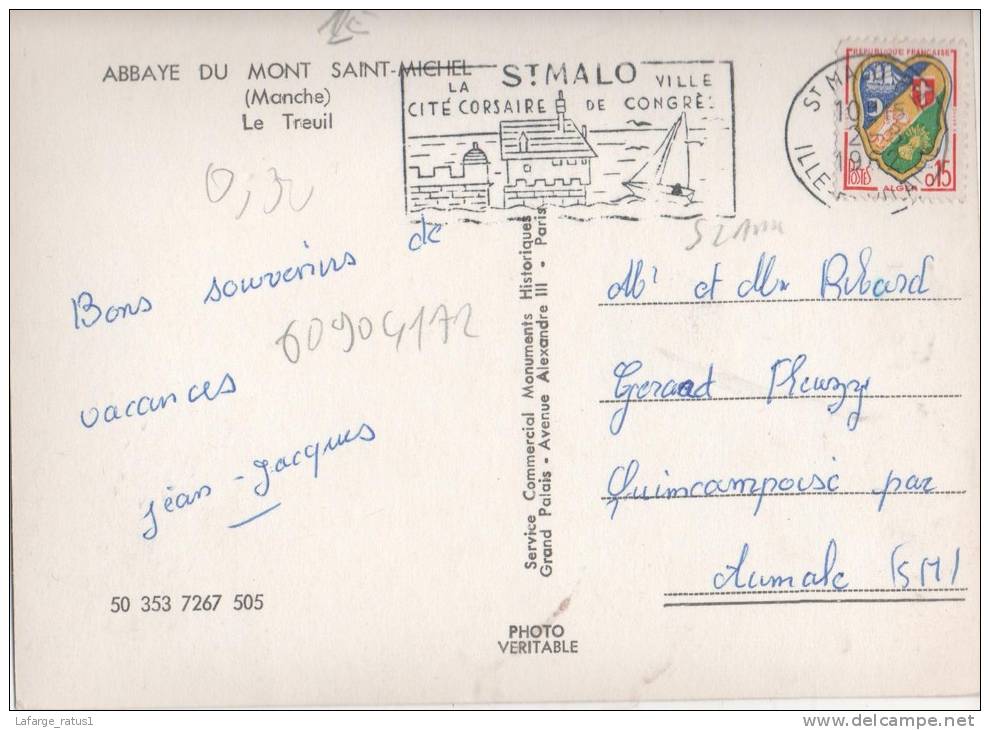 1€
ABBAYE DU MONT SAINT-MICHEL
(Manche)
Le Treuil
0,30
ST MALO
LA VILLE
CITÉ CORSAIRE DE CONGRÈS
ST MALO
10
ILLE
REPUBLIQUE FRANÇAISE
POSTES
ALGER
0,15
Bons souvenirs de
vacances
Jean-Jacques
60904172
Service Commercial Monuments Historiques
Grand Palais - Avenue Alexandre III - Paris
Mr et Mme Ribard
Gerard Fleuzy
Quincampoix par
Aumale (SM)
50 353 7267 505
PHOTO
VERITABLE
Lafarge_ratus1
delcampe.net